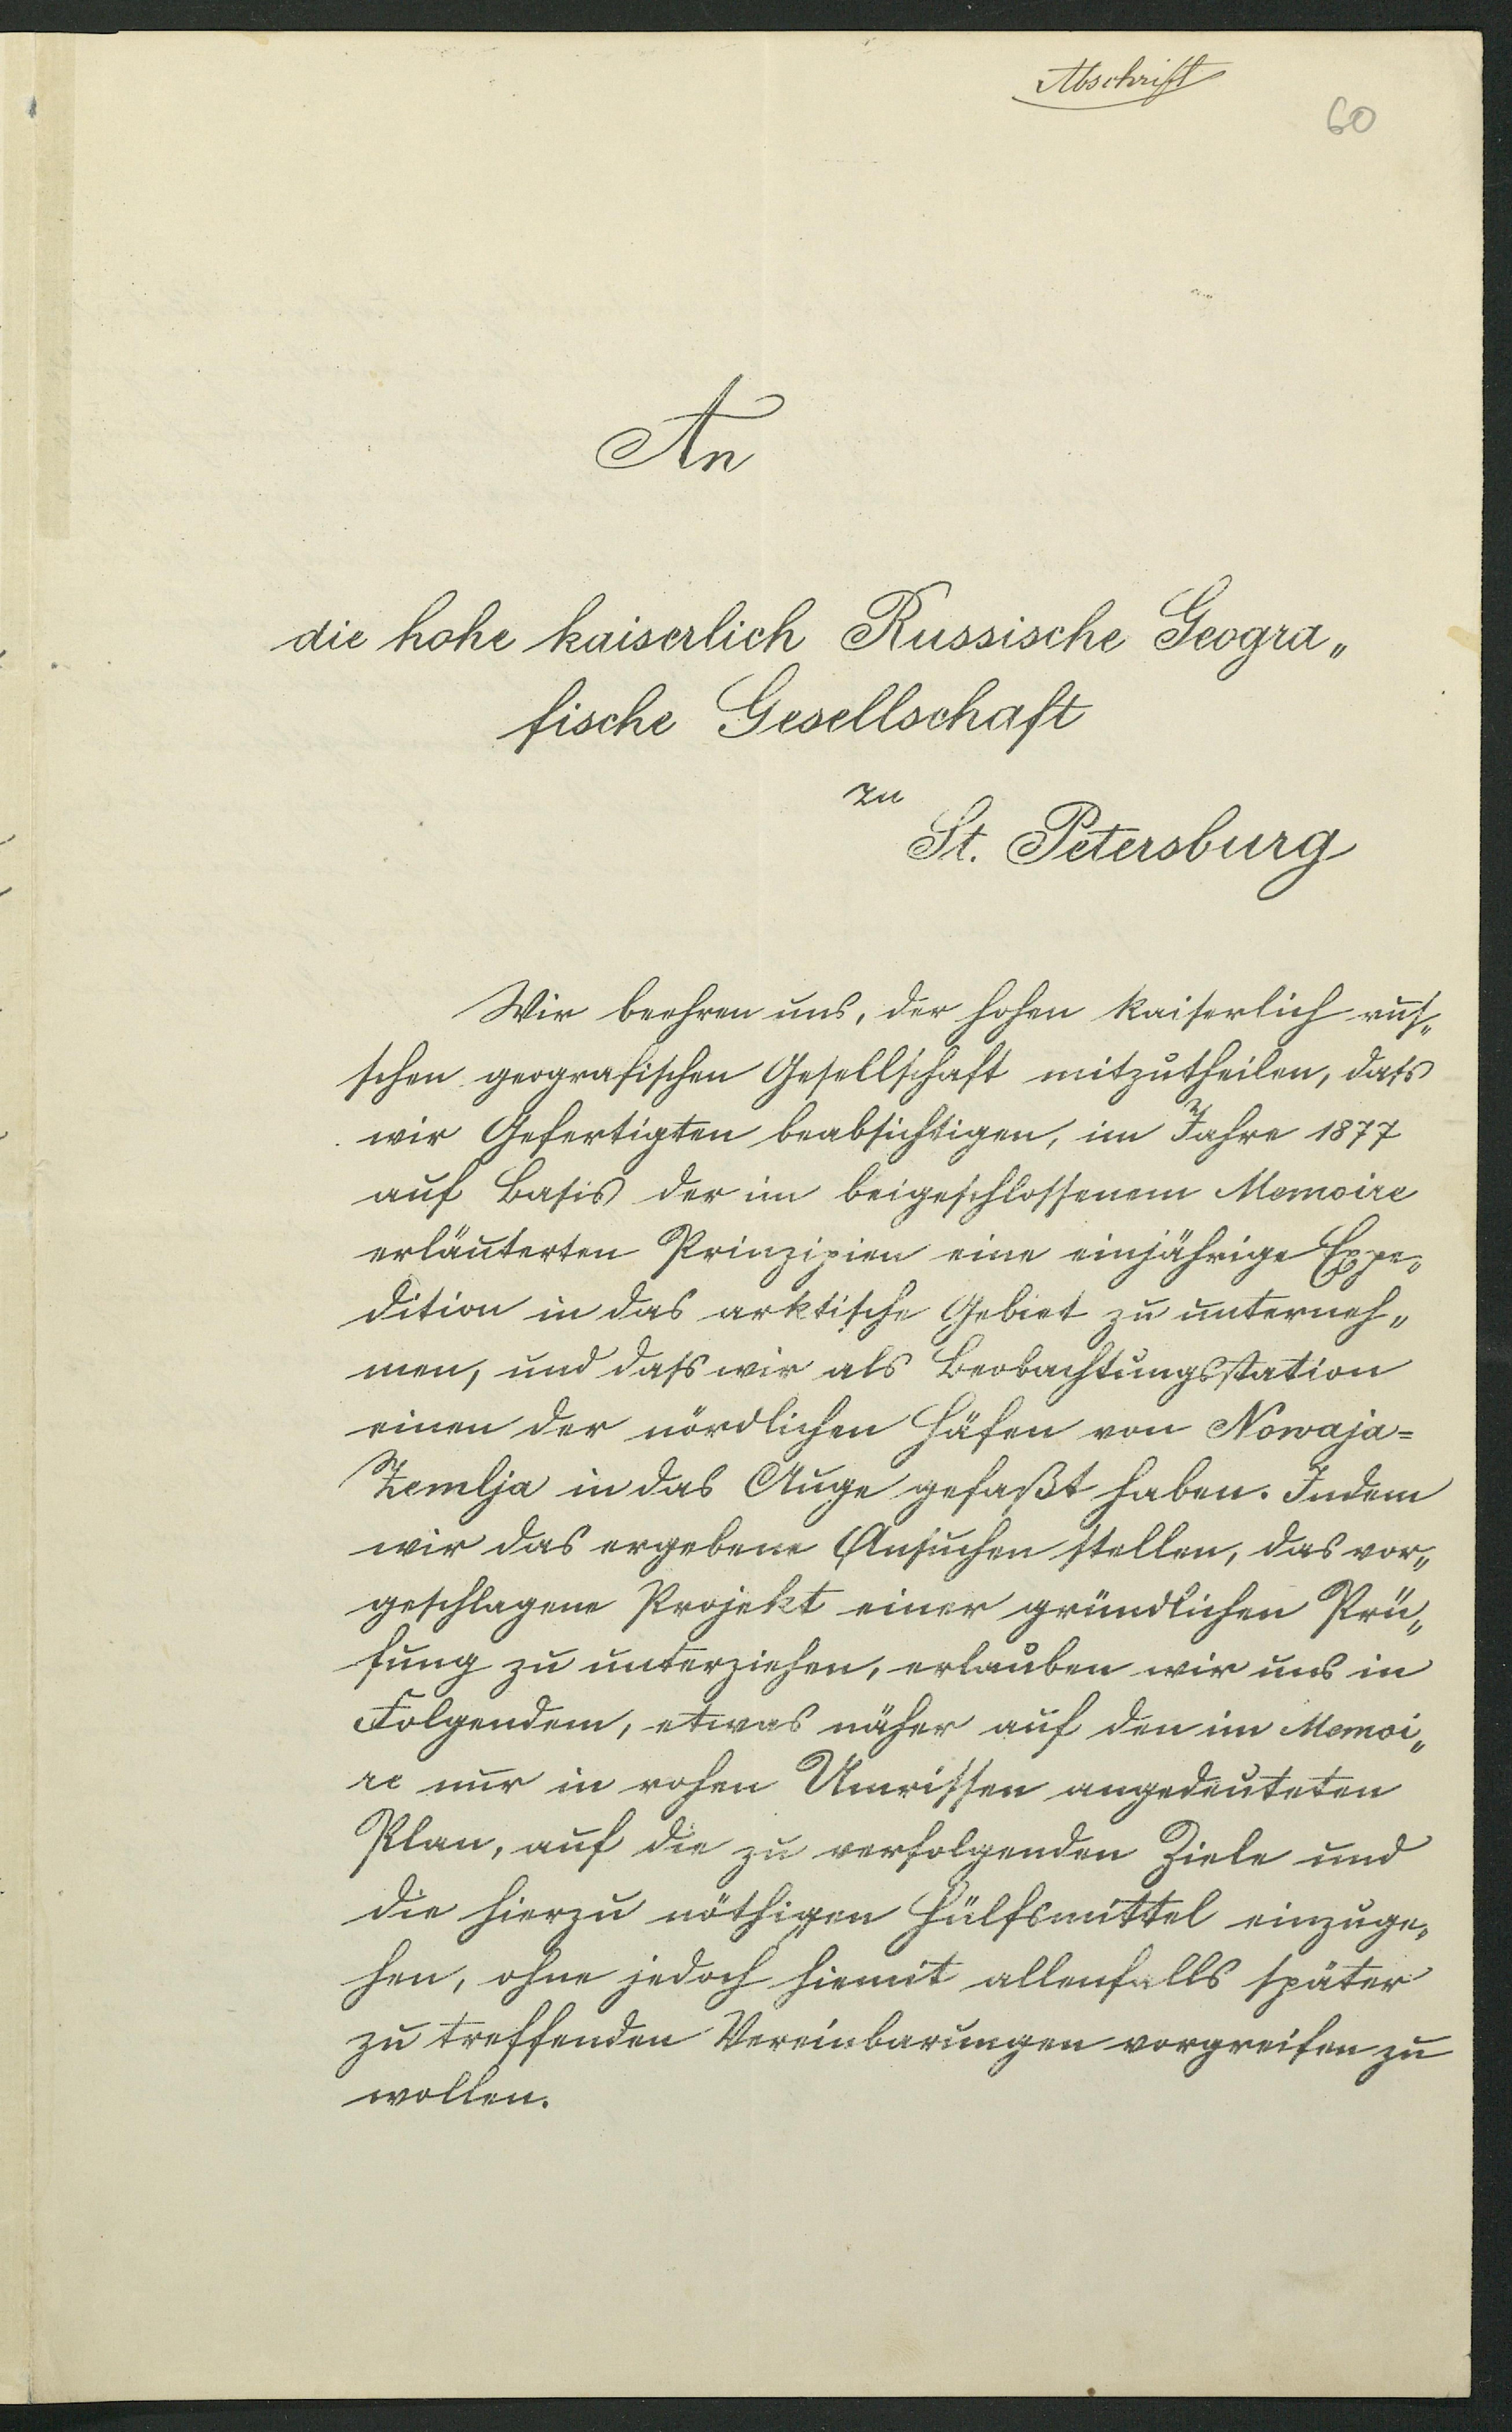 Abschrift
60
An
die hohe kaiserlich Russische Geogra„
fische Gesellschaft
zu
St. Petersburg
Wir beehren uns, der hohen kaiserlich rus„
schen geografischen Gesellschaft mitzutheilen, dass
wir Gefertigten beabsichtigen, im Jahre 1877
auf Basis der im beigeschlossenem Memoire
erläuterten Prinzipien eine einjährige Expe„
dition in das arktische Gebiet zu unterneh„
men, und dass wir als Beobachtungsstation
einen der nördlichen Häfen von Nowaja=
Zemlja in das Auge gefaßt haben. Indem
wir das ergebene Ansuchen stellen, das vor„
geschlagene Projekt einer gründlichen Prü„
fung zu unterziehen, erlauben wir uns in
Folgendem, etwas näher auf den im Memoi„
re nur in rohen Umrissen angedeuteten
Plan, auf die zu verfolgenden Ziele und
die hierzu nöthigen Hülfsmittel einzuge„
hen, ohne jedoch hiemit allenfalls später
zu treffenden Vereinbarungen vorgreifen zu
wollen.